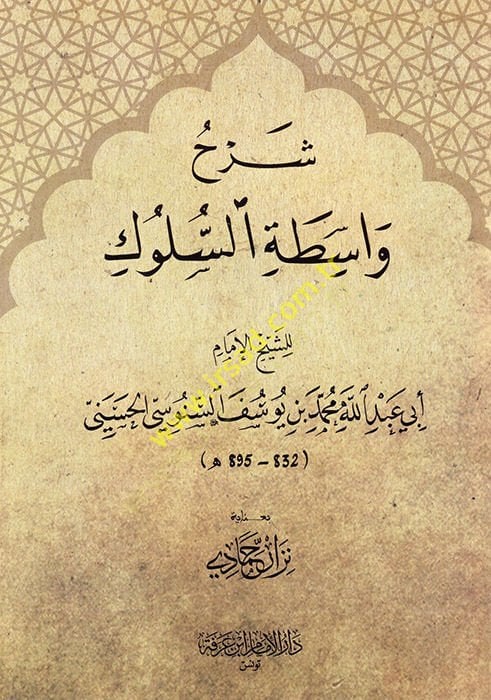 شَرْحُ
وَاسِطَةِ ٱلسُّلُوكِ
للشيخ الإمام
أبي عَبْدِ ٱللَّهِ مُحَمَّدِ بْنِ يُوسُفَ السَّنُوسِيِّ الحَسَنِيِّ
(832 - 895 هـ)
بعناية
نزار حمّادي
دار الإمام ابن عرفة
تونس